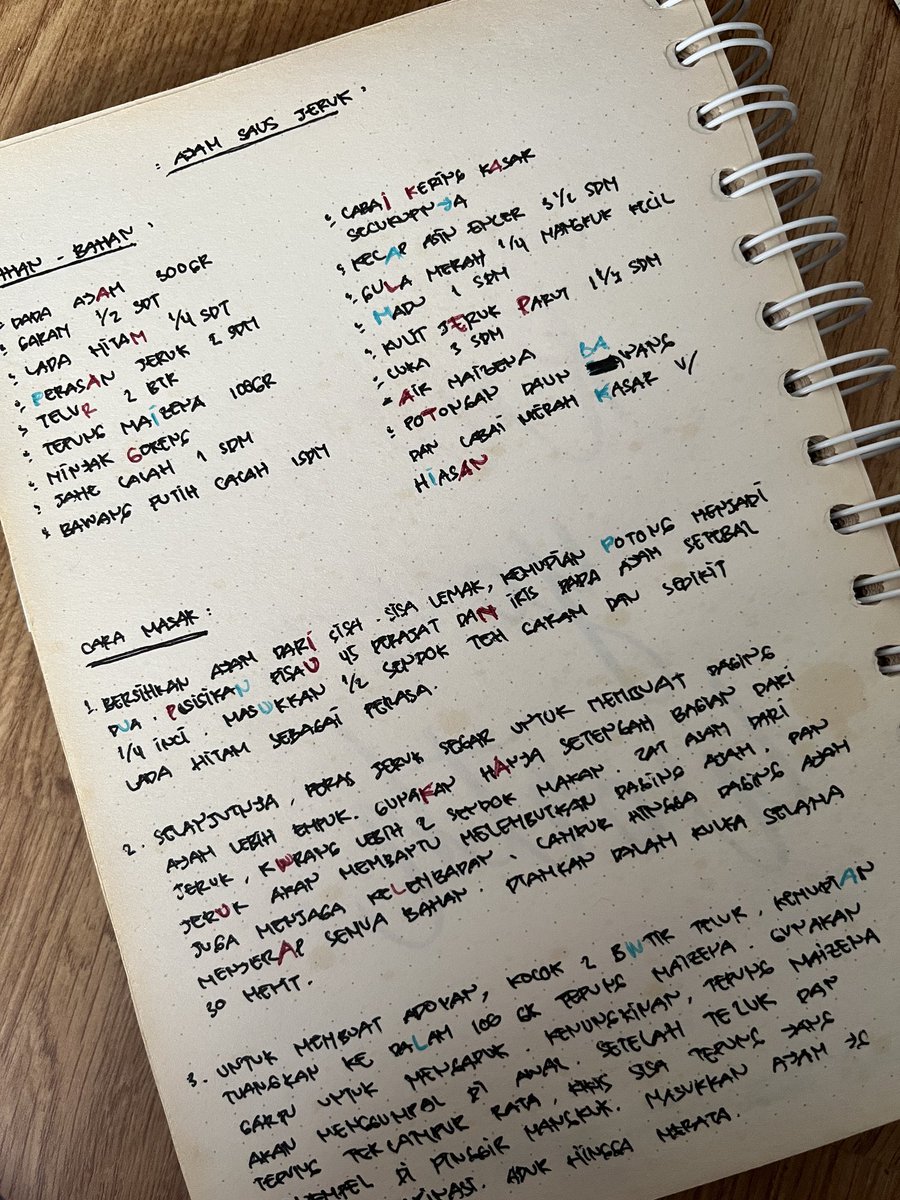 : AJAM SAUS JERUK :
HAN - BAHAN :
: DADA AJAM 300GR
: GARAM 1/2 SDT
: LADA HITAM 1/4 SDT
: PERASAN JERUK 2 SDM
: TELUR 2 BTR
: TEPUNG MAIZENA 108GR
: MINJAK GORENG
: JAHE CACAH 1 SDM
: BAWANG PUTIH CACAH 1SDM
: CABAI KERING KASAR
SECUKUPNJA
: KECAP ASIN ENCER 3 1/2 SDM
: GULA MERAH 1/4 MANGKUK KECIL
: MADU 1 SDM
: KULIT JERUK PARUT 1 1/3 SDM
: CUKA 3 SDM
: AIR MAIZENA
: POTONGAN DAUN BAWANG
DAN CABAI MERAH KASAR U/
HIASAN
CARA MASAK :
1. BERSIHKAN AJAM DARI SISA-SISA LEMAK, KEMUDIAN POTONG MENJADI
DUA. POSISIKAN PISAU 45 DERAJAT DAN IRIS DADA AJAM SETEBAL
1/4 INCI. MASUKKAN 1/2 SENDOK TEH GARAM DAN SEDIKIT
LADA HITAM SEBAGAI PERASA.
2. SELANJUTNJA, PERAS JERUK SEGAR UNTUK MEMBUAT DAGING
AJAM LEBIH EMPUK. GUNAKAN HANJA SETENGAH BAGIAN DARI
JERUK, KURANG LEBIH 2 SENDOK MAKAN. ZAT ASAM DARI
JERUK AKAN MEMBANTU MELEMBUTKAN DAGING AJAM, DAN
JUGA MENJAGA KELEMBABAN. CAMPUR HINGGA DAGING AJAM
MENJERAP SEMUA BAHAN. DIAMKAN DALAM KULKAS SELAMA
30 MENIT.
3. UNTUK MEMBUAT ADONAN, KOCOK 2 BUTIR TELUR, KEMUDIAN
TUANGKAN KE DALAM 108 GR TEPUNG MAIZENA. GUNAKAN
GARPU UNTUK MENGADUK. KEMUNGKINAN, TEPUNG MAIZENA
AKAN MENGGUMPAL DI AWAL. SETELAH TELUR DAN
TEPUNG TERCAMPUR RATA, SISA TEPUNG JANG
EMPEL DI PINGGIR MANGKUK. MASUKKAN AJAM JG
INASI. ADUK HINGGA MERATA.